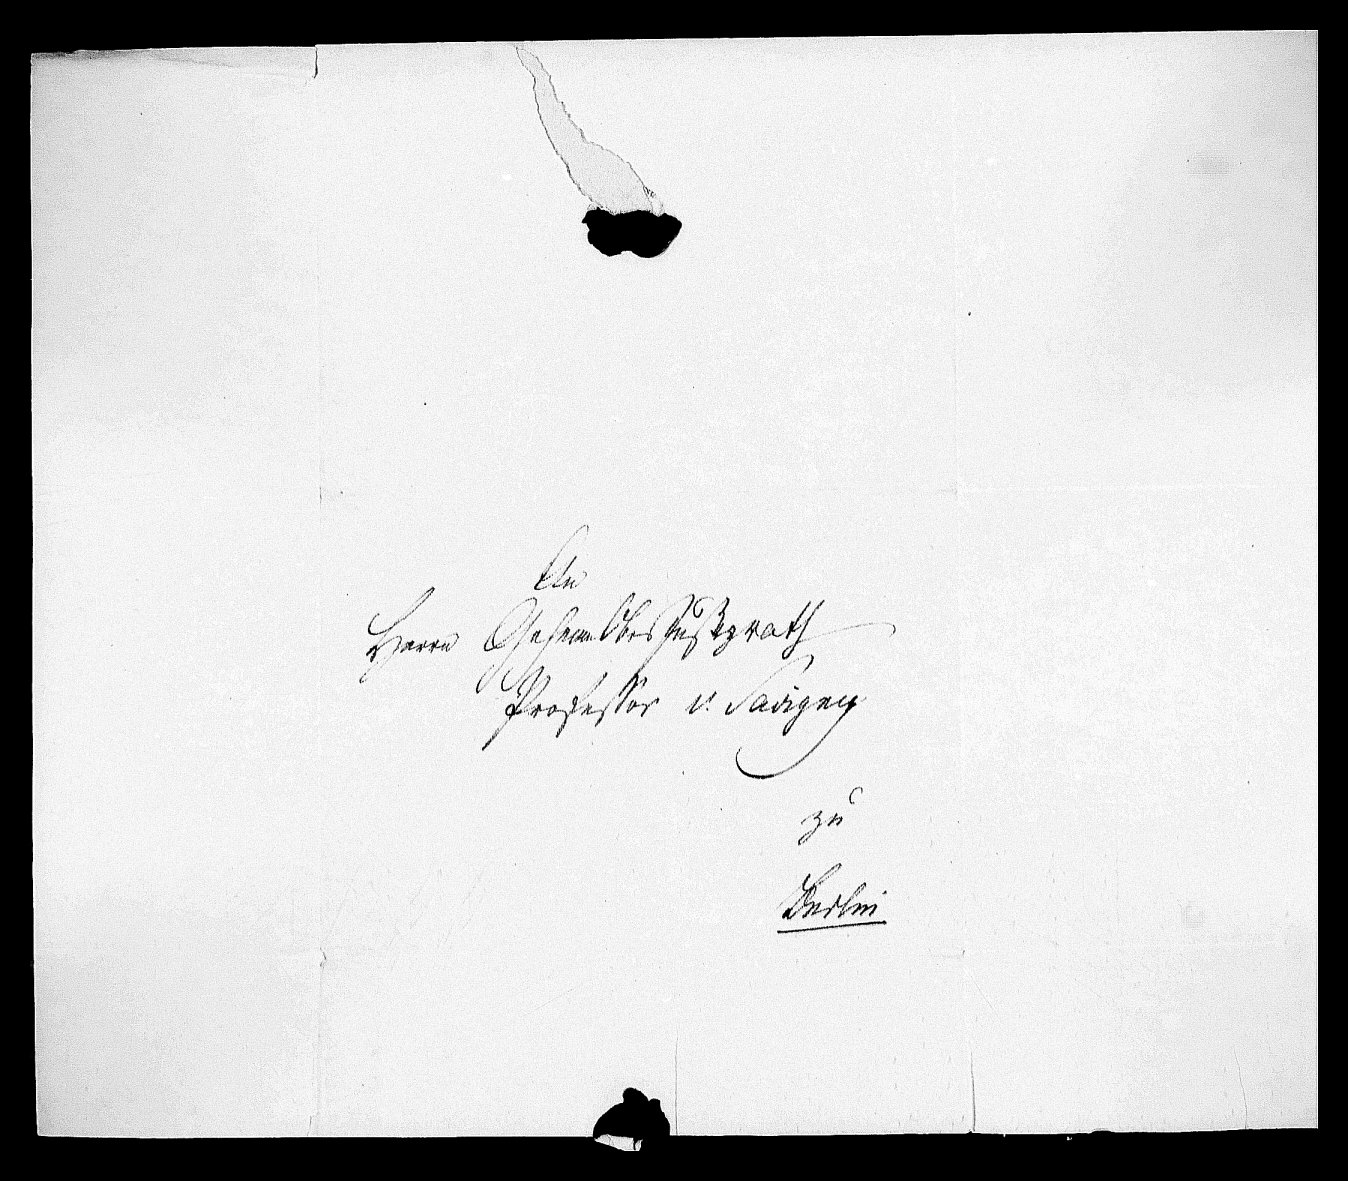 An
Herrn Geheim Ober Justizrath
Professor v. Savigny
zu
Berlin